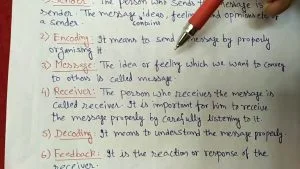 Sender: The person who sends message is
sender. The message ideas, feeling and opinions of
a sender contains
2) Encoding: It means to send message by properly
organising it
3) Message: The idea or feeling which we want to convey
to others is called message
4) Receiver: The person who receives the message is
called receiver. It is important for him to receive
the message properly by carefully listening to it.
5) Decoding: It means to understand the message properly
6) Feedback: It is the reaction or response of the
receiver.